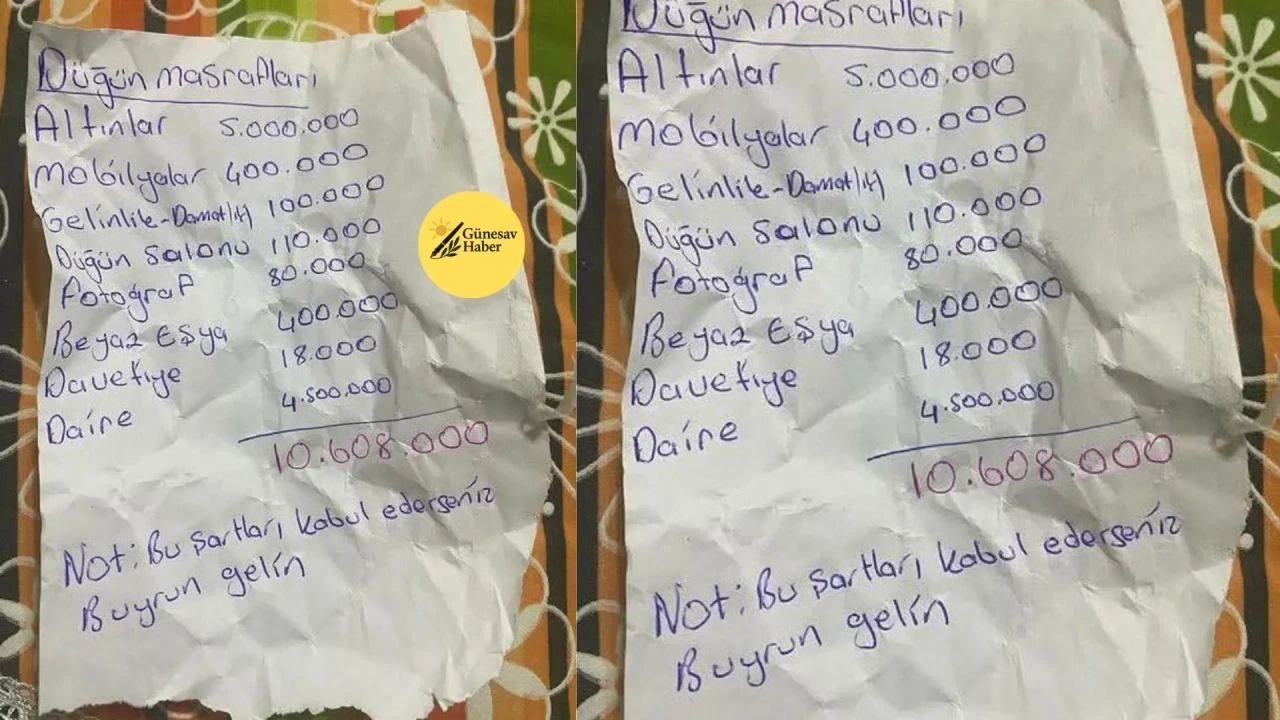 Düğün masrafları
Altınlar 5.000.000
Mobilyalar 400.000
Gelinlik-Damatlık 100.000
Düğün Salonu 110.000
Fotoğraf 80.000
Beyaz Eşya 400.000
Davetiye 18.000
Daire 4.500.000
10.608.000
Not: Bu şartları kabul ederseniz
Buyrun gelin
Günesav
Haber
Düğün masrafları
Altınlar 5.000.000
Mobilyalar 400.000
Gelinlik-Damatlık 100.000
Düğün Salonu 110.000
Fotoğraf 80.000
Beyaz Eşya 400.000
Davetiye 18.000
Daire 4.500.000
10.608.000
Not: Bu şartları kabul ederseniz
Buyrun gelin